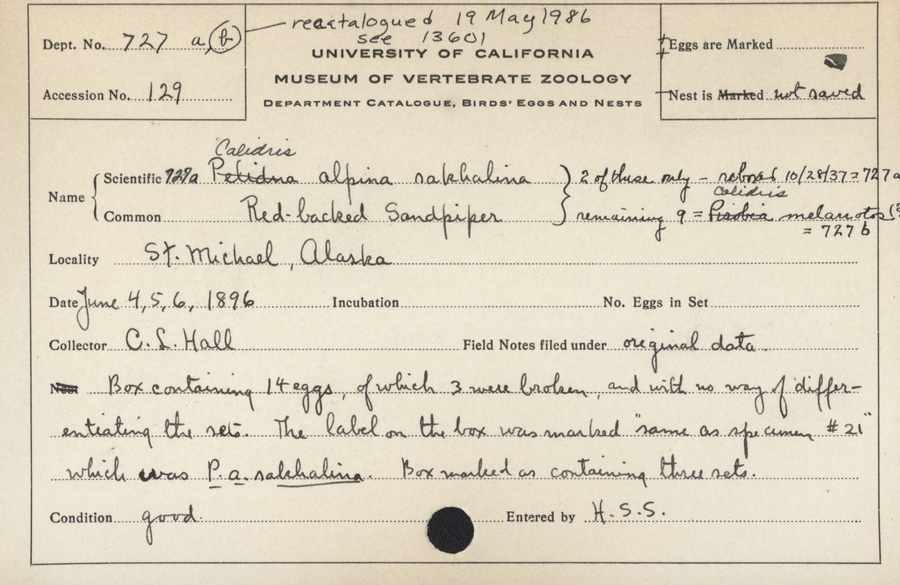 recatalogued 19 May 1986
see 13601
Dept. No. 727 a, b
UNIVERSITY OF CALIFORNIA
Eggs are Marked
MUSEUM OF VERTEBRATE ZOOLOGY
Accession No. 129
DEPARTMENT CATALOGUE, BIRDS' EGGS AND NESTS
Nest is Marked not saved
Calidris
Name Scientific 727a Pelidna alpina sakhalina 2 of these only – reboxed 10/28/37 = 727a
Calidris
Common Red-backed Sandpiper remaining 9 = Pisobia melanotos (?
= 727b
Locality St. Michael, Alaska
Date June 4, 5, 6, 1896 Incubation No. Eggs in Set
Collector C. L. Hall Field Notes filed under original data.
Nest Box containing 14 eggs, of which 3 were broken, and with no way of differ-
entiating the sets. The label on the box was marked "same as specimen #21"
which was P. a. sakhalina. Box marked as containing three sets.
Condition good. Entered by H.S.S.